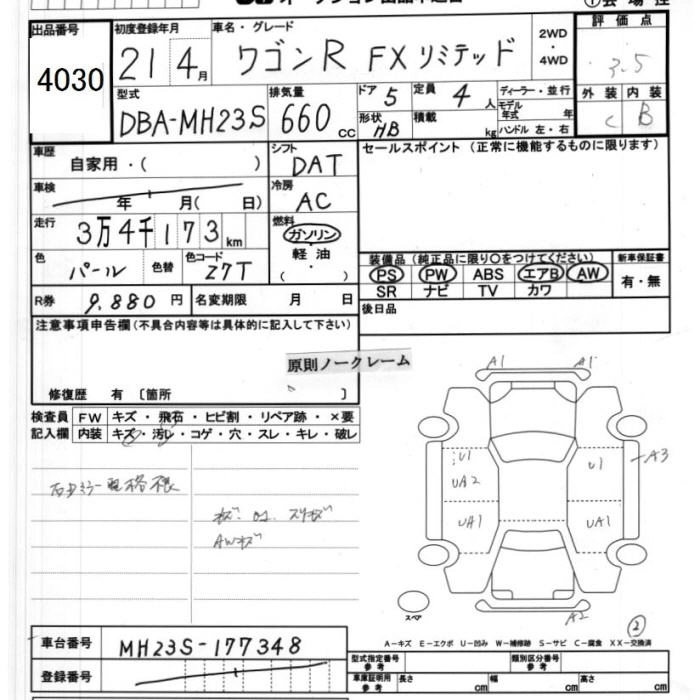 出品番号 初度登録年月 車名・グレード 評価点
4030 21 4月 ワゴンR FXリミテッド 2WD・4WD 3.5
型式 排気量 ドア 5 定員 4人 ディーラー・並行 外装 内装
DBA-MH23S 660cc 形状 HB 積載 kg モデル年式 年 ハンドル 左・右 C B
車歴 自家用・( ) シフト DAT セールスポイント(正常に機能するものに限ります)
車検 年 月( 日) 冷房 AC
走行 3万4千173km 燃料 ガソリン・軽油・( )
色 パール 色替 色コード Z7T 装備品(純正品に限り〇をつけてください) 新車保証書
PS PW ABS エアB AW 有・無
SR ナビ TV カワ
R券 9,880円 名変期限 月 日 後日品
注意事項申告欄(不具合内容等は具体的に記入して下さい)
原則ノークレーム
修復歴 有〔箇所 〕
検査員 FW キズ・飛石・ヒビ割・リペア跡・×要
記入欄 内装 キズ・汚レ・コゲ・穴・スレ・キレ・破レ
A1 A1
U1 U1 A3
UA2
UA1 UA1
AWキズ
スペア A2
②
A-キズ E-エクボ U-凹み W-補修跡 S-サビ C-腐食 XX-交換済
車台番号 MH23S-177348
型式指定番号 参考 類別区分番号 参考
登録番号 車庫証明用 参考 長さ cm 幅 cm 高さ cm